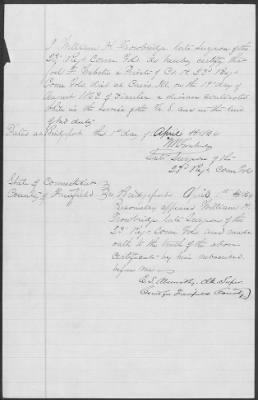 I William H. Trowbridge late Surgeon of the
23d Regt Conn Vols. do hereby certify that
F. Webster a Private of Co. 23d Regt
Conn Vols, died at on the 19th day of
August 1863 of a disease contracted
while in the service of the U.S. and in the line
of his duty
Dated at Bridgeport this 1st day of April 1864
Trowbridge
late Surgeon of the
23d Regt Conn Vols
State of Connecticut
County of Fairfield Bridgeport April 1864
Personally appeared William H.
Trowbridge late Surgeon of the
23d Regt Conn Vols and made
oath to the truth of the above
certificate by him subscribed
before me
Clk Super
Court for Fairfield County